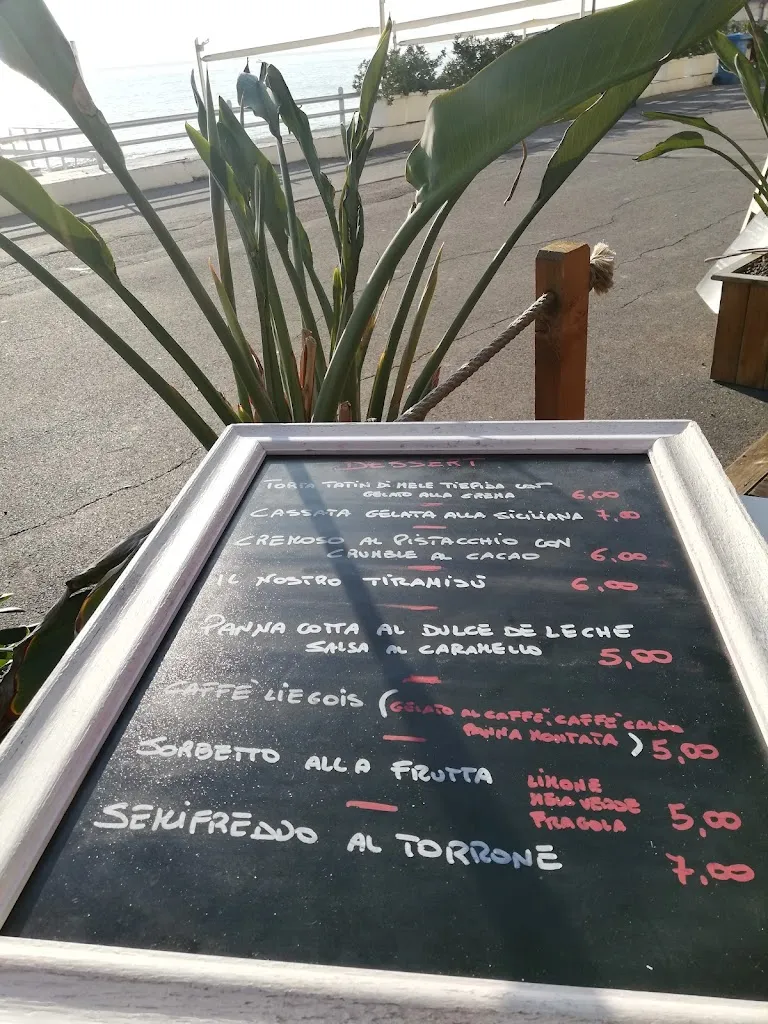 DESSERT
TORTA TATIN DI MELE TIEPIDA CON
GELATO ALLA CREMA 6,00
CASSATA GELATA ALLA SICILIANA 7,00
CREMOSO AL PISTACCHIO CON
CRUMBLE AL CACAO 6,00
IL NOSTRO TIRAMISÙ 6,00
PANNA COTTA AL DULCE DE LECHE
SALSA AL CARAMELLO 5,00
CAFFÈ LIEGOIS (GELATO AL CAFFÈ, CAFFÈ CALDO
PANNA MONTATA) 5,00
SORBETTO ALLA FRUTTA LIMONE
MELA VERDE
FRAGOLA 5,00
SEMIFREDDO AL TORRONE 7,00